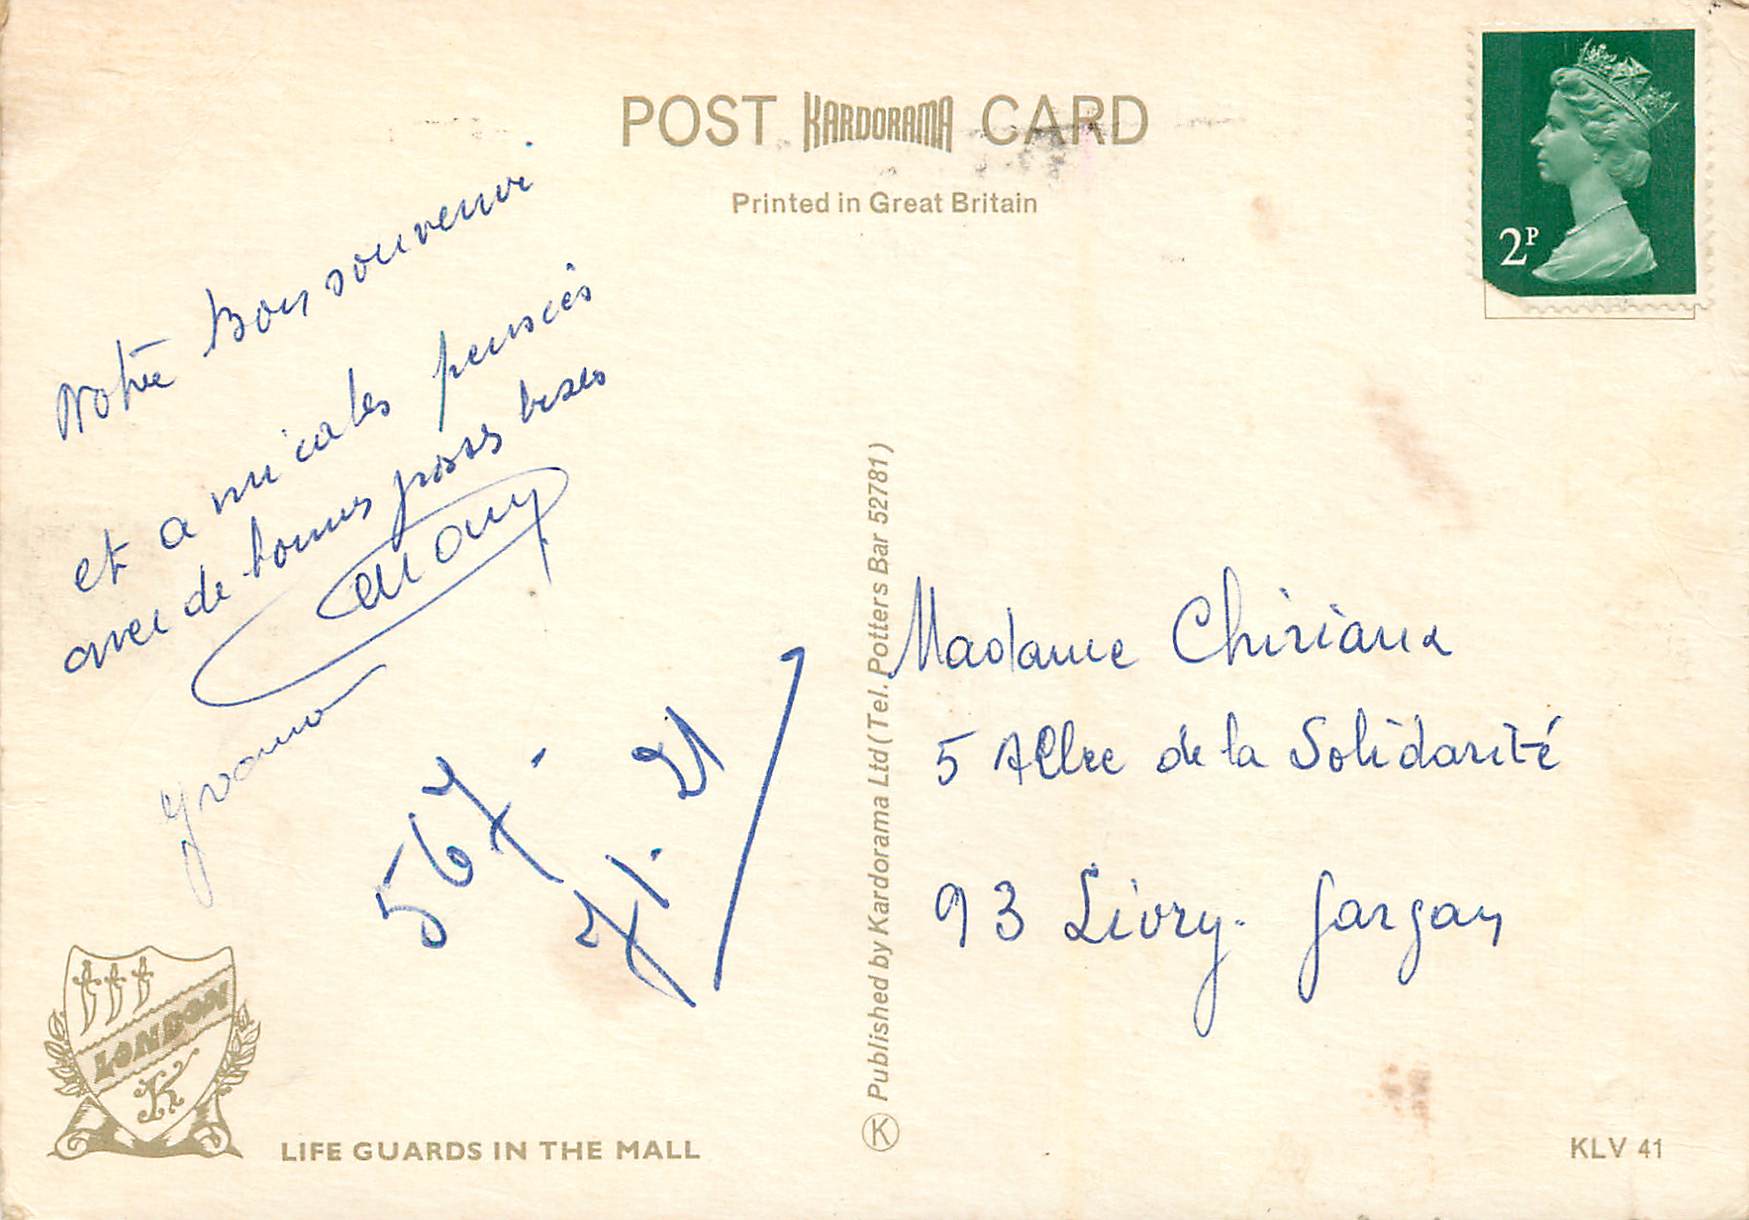 POST KARDORAMA CARD
Printed in Great Britain
2P
Notre Bon souvenir
et amicales pensées
avec de bonnes grosses bises
Yvonne
567-
71.21
Madame Chiriaux
5 Allée de la Solidarité
93 Livry-Gargan
Published by Kardorama Ltd (Tel. Potters Bar 52781)
K
LONDON
K
LIFE GUARDS IN THE MALL
KLV 41